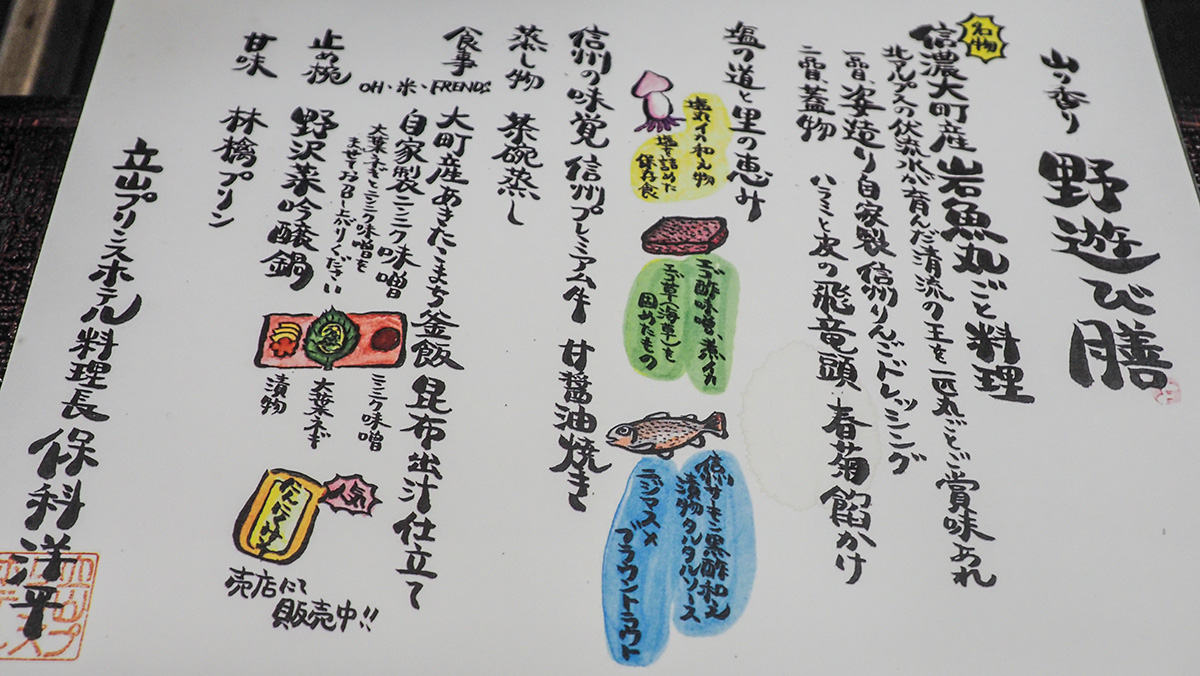 山の香り 野遊び膳
名物
信濃大町産 岩魚丸ごと料理
北アルプスの伏流水が育んだ清流の王を一匹丸ごとご賞味あれ
一皿目、姿造り 自家製 信州りんごドレッシング
二皿目、蓋物 ハラミと皮の飛竜頭 春菊餡かけ
塩の道と里の恵み
塩丸イカ和え物
塩を詰めた
保存食
エゴ酢味噌、煮イカ
エゴ草(海草)を
固めたもの
信州サーモン黒酢和え
漬物タルタルソース
ニジマス×
ブラウントラウト
信州の味覚 信州プレミアム牛 甘醤油焼き
蒸し物 茶碗蒸し
食事 大町産あきたこまち釜飯 昆布出汁仕立て
OH、米、FRENDS
自家製ニンニク味噌
大葉ネギとニンニク味噌を
まぜてお召し上がりください
ニンニク味噌
大葉ネギ
漬物
止め椀 野沢菜吟醸鍋
人気
にんにくみそ
売店にて
販売中!!
甘味 林檎プリン
立山プリンスホテル 料理長 保科洋平